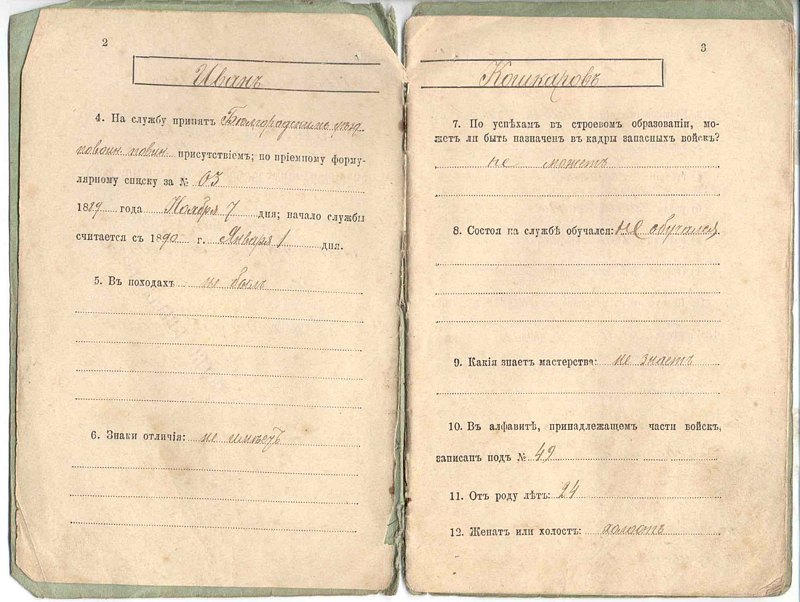 2
Иванъ
4. На службу принятъ Бѣлгородскимъ уѣзд.
повоин. повин. присутствіемъ; по пріемному форму-
лярному списку за № 03
1889 года Ноября 7 дня; начало службы
считается съ 1890 г. Января 1 дня.
5. Въ походахъ не былъ
6. Знаки отличія: не имѣетъ
3
Кошкаровъ
7. По успѣхамъ въ строевомъ образованіи, мо-
жетъ ли быть назначенъ въ кадры запасныхъ войскъ?
не можетъ
8. Состоя на службѣ обучался: не обучался.
9. Какія знаетъ мастерства: не знаетъ
10. Въ алфавитѣ, принадлежащемъ части войскъ,
записанъ подъ № 49
11. Отъ роду лѣтъ: 24
12. Женатъ или холостъ: холостъ